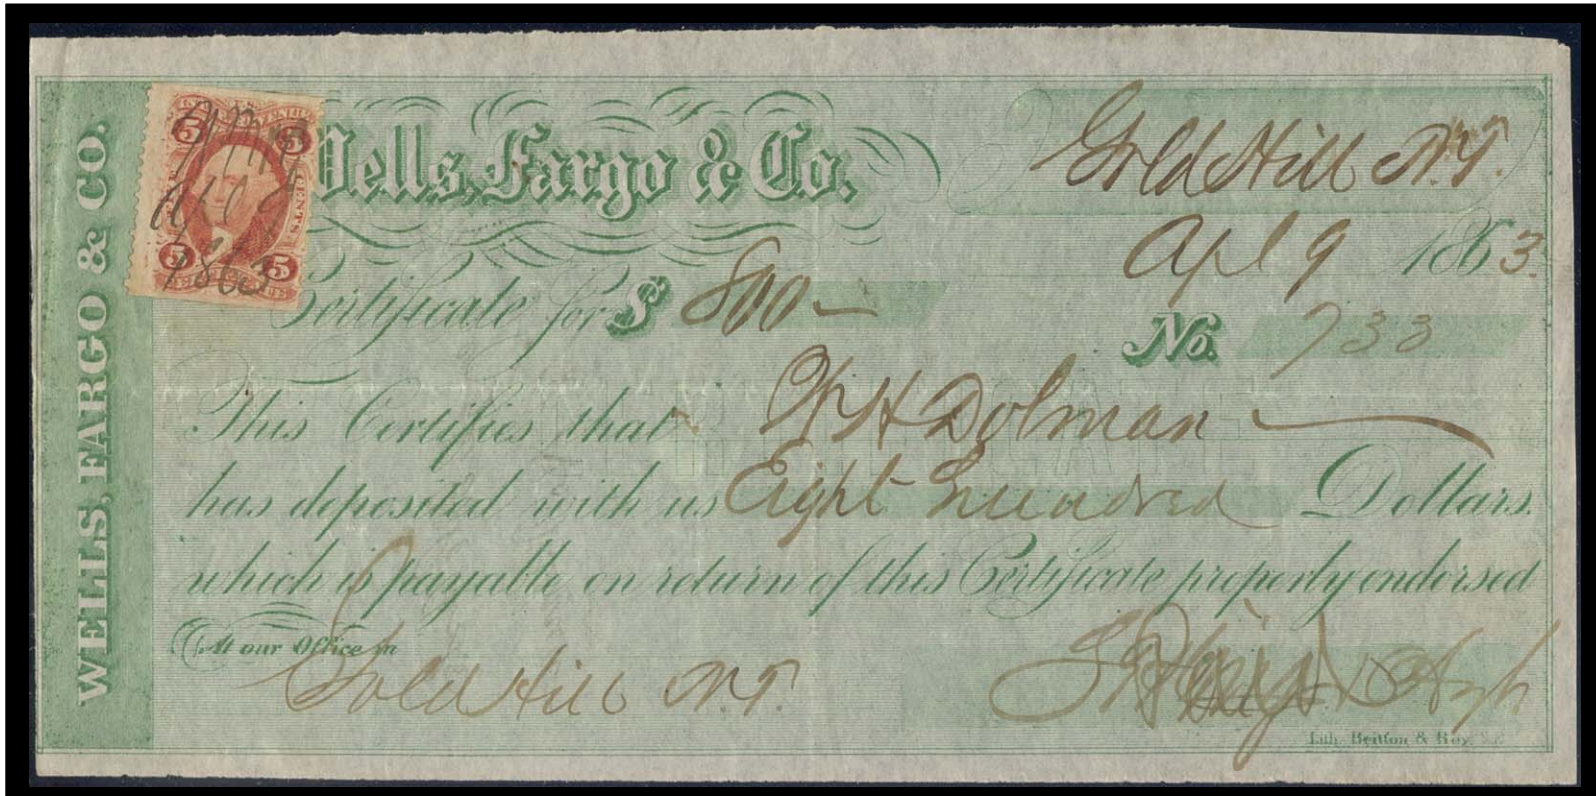 WELLS, FARGO & CO.
5 5
CENTS
5 5
1863
Wells, Fargo & Co.
Gold Hill N.T.
Apl 9 1863.
Certificate for $ 800 —
No. 733
This Certifies that W H Dolman
has deposited with us Eight hundred Dollars.
which is payable on return of this Certificate properly endorsed
At our Office in
Gold Hill N.T.
Agt
Lith. Britton & Rey, S.F.